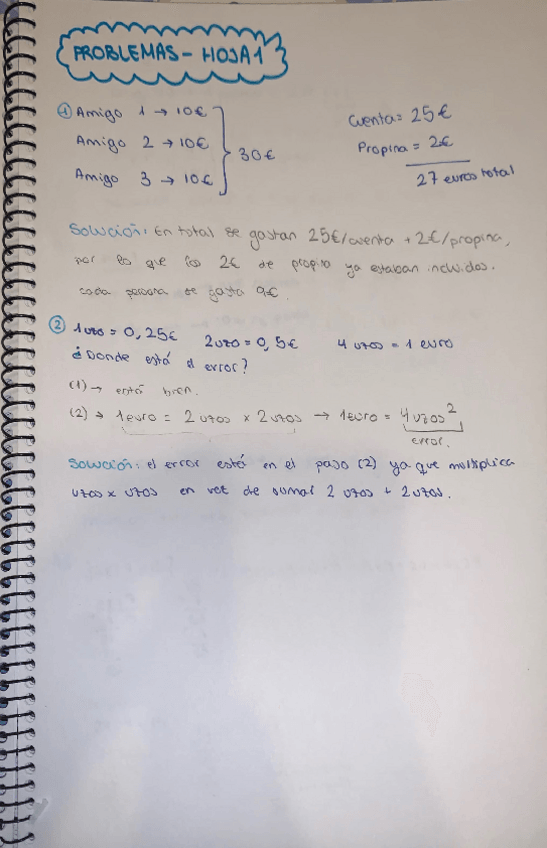 PROBLEMAS - HOJA 1
① Amigo 1 → 10€
Amigo 2 → 10€
Amigo 3 → 10€
30€
Cuenta = 25€
Propina = 2€
27 euros total
Solución: En total se gastan 25€/cuenta + 2€/propina,
por lo que los 2€ de propina ya estaban incluidos.
cada persona se gasta 9€.
② 1uzo = 0,25€ 2uzo = 0,5€ 4 uzos = 1 euro
¿Donde está el error?
(1) → está bien.
(2) → 1euro = 2 uzos x 2uzos → 1euro = 4 uzos²
error.
Solución: el error está en el paso (2) ya que multiplica
uzos x uzos en vez de sumar 2 uzos + 2uzos.